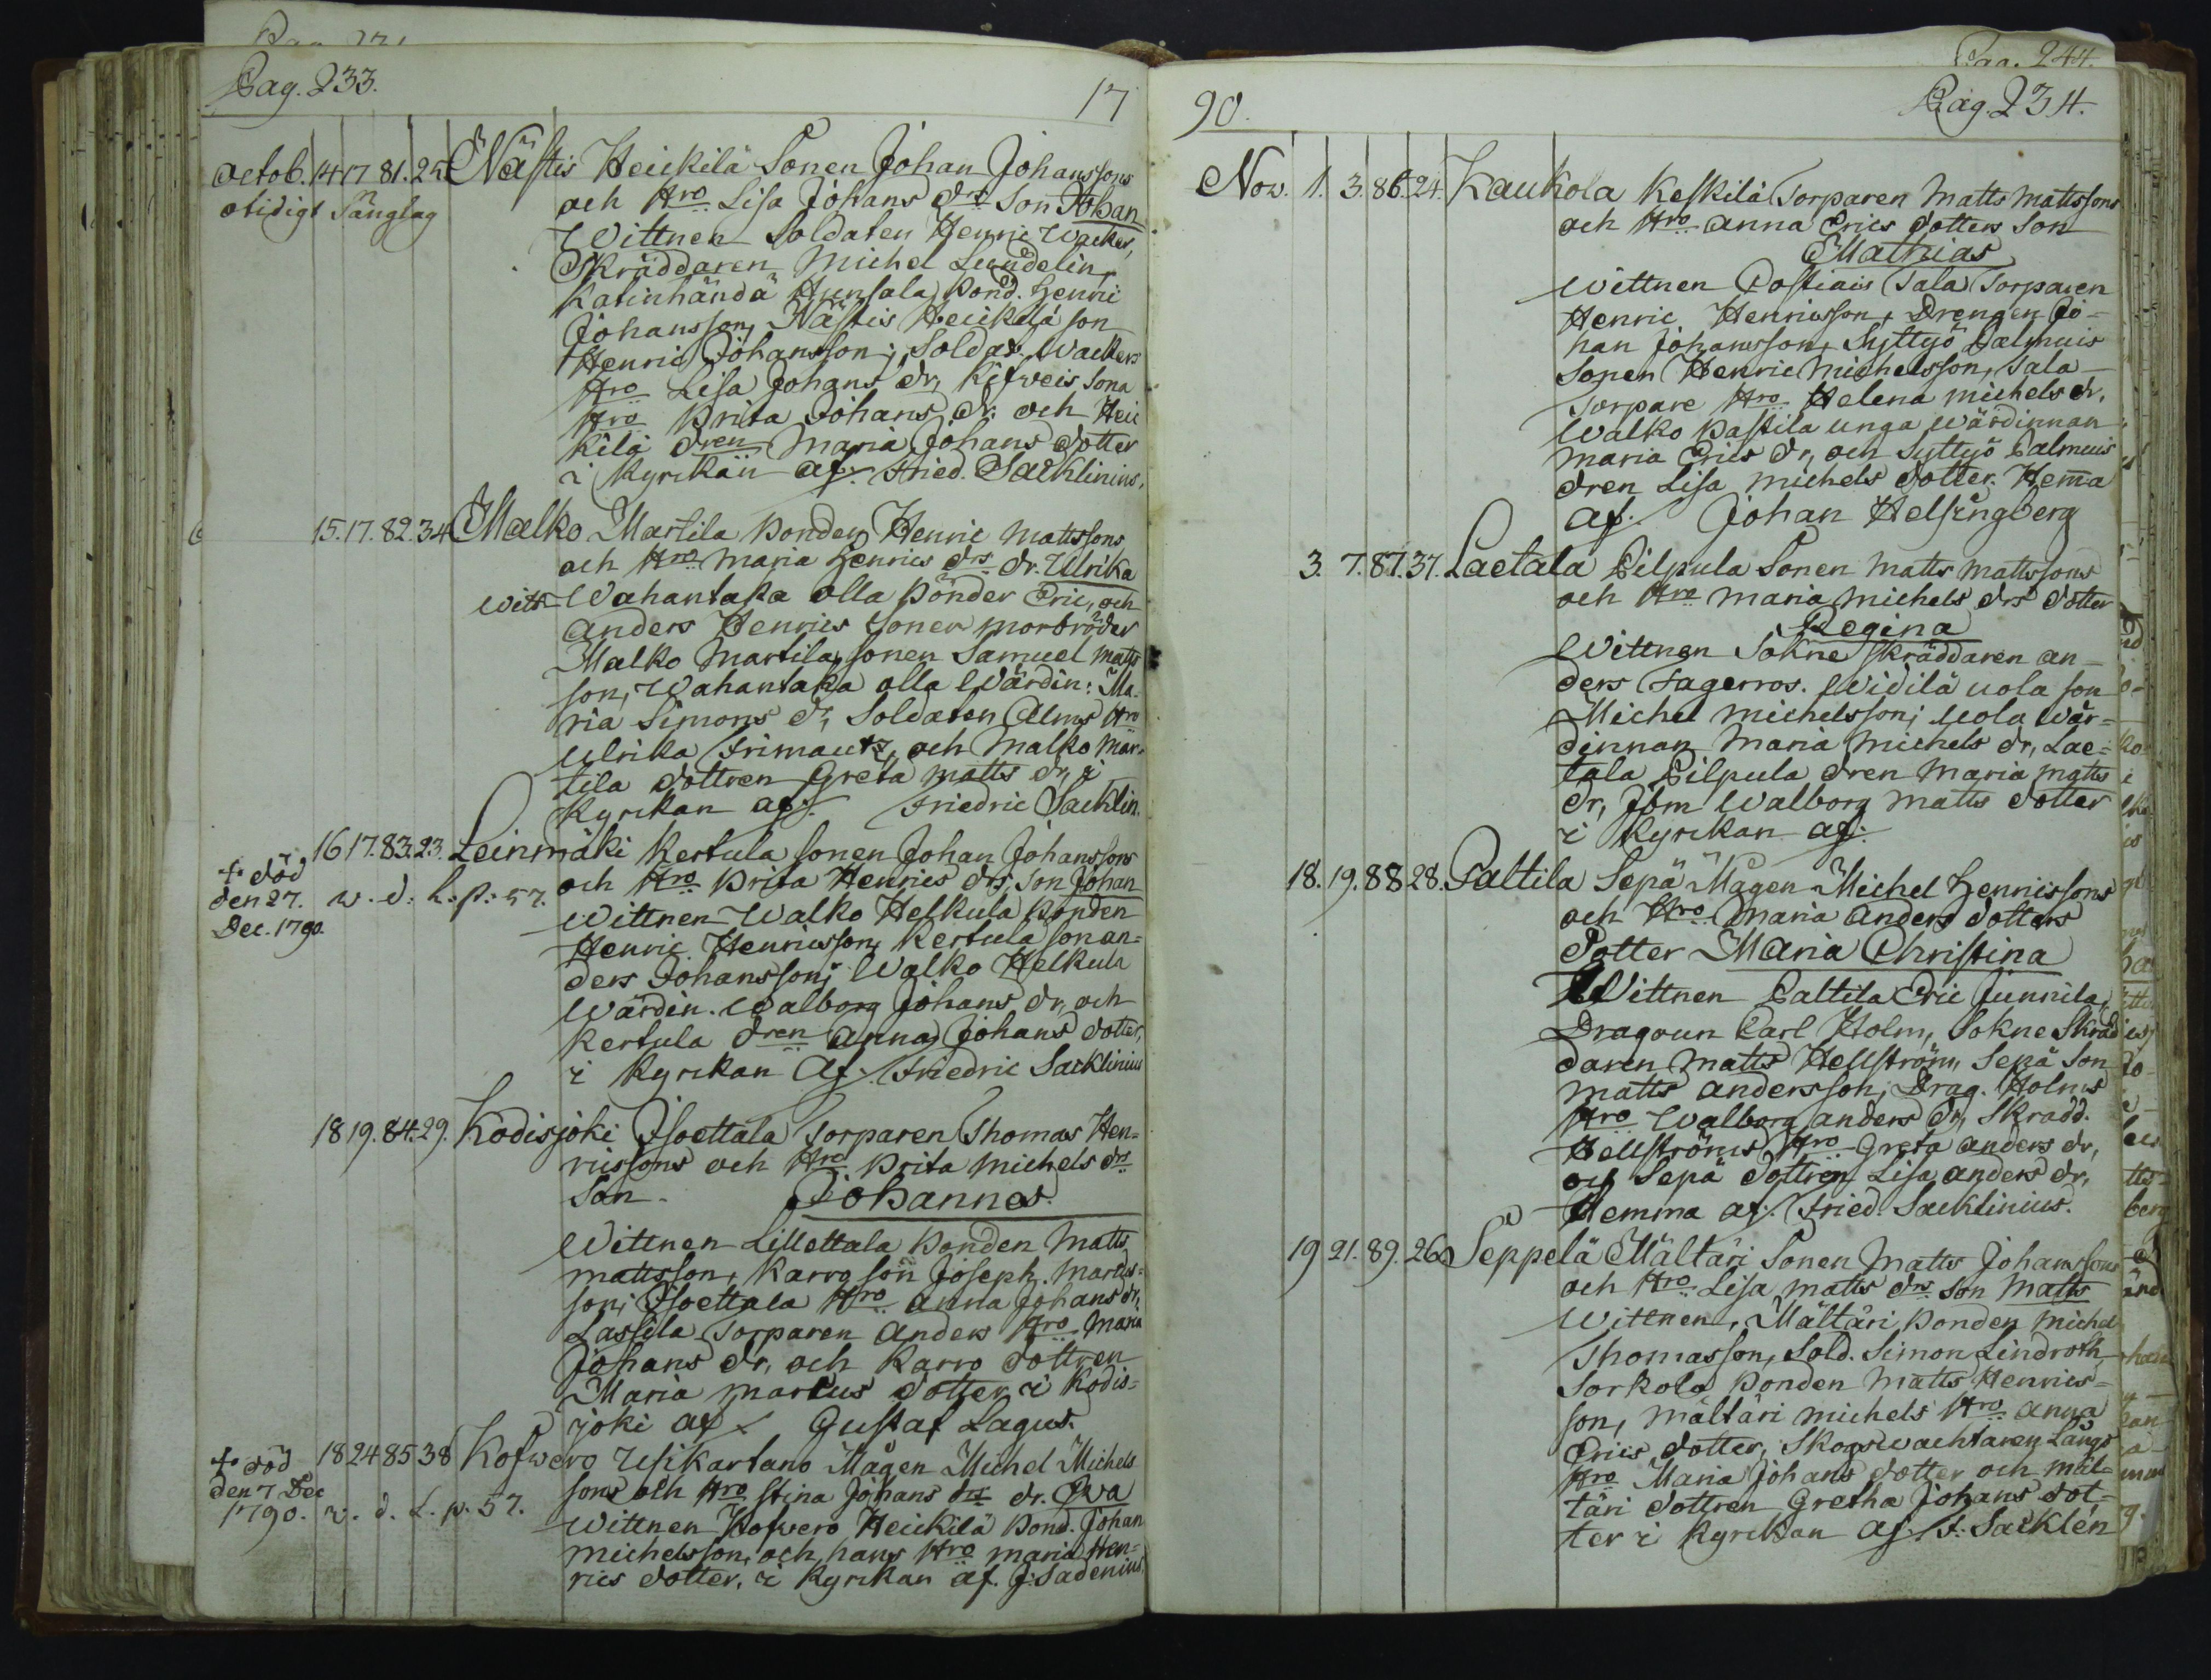 Pag. 233.
17
Octob. 14 17 81. 25 Nästis Heickilä Sonen Johan Johanssons
otidigt Sänglag
och Hro Lisa Johans drs Son Johan
Wittnen Soldaten Henric Wacker,
Skräddaren Michel Lundelin,
Katinhändä Hensala bond. Henric
Johansson, Nästis Heickilä son
Henric Johansson; Soldat. Wackers
Hro Lisa Johans dr, Kitweis Sona
Hro Brita Johans dr och Hei
kilä dren Maria Johans dotter
i Kyrckan af. Fried. Sacklinius.
15. 17. 82. 34 Malko Martila bonden Henric Mattssons
och Hro Maria Henrics drs dr. Ulrika
Witt Wahantaka olla bönder Eric, och
Anders Henrics Söner morbröder
Malko Martila, sonen Samuel Matts
son, Wahantaka olla Wärdin: Ma-
ria Simons dr, Soldaten Alms Hro
Ulrika Frimautz, och Malko Mar-
tila dottren Greta Matts dr, i
Kyrckan af. Friedric Sacklin.
16 17. 83. 23. Leinmäki Kertula sonen Johan Johanssons
+ död den 27. Dec. 1790. v. d. L. p. 57.
och Hro Brita Henrics drs, son Johan
Wittnen Walko Helkula bonden
Henric Henricsson, Kertula son an-
ders Johansson; Walko Helkula
Wärdin. Walborg Johans dr, och
Kertula dren Anna Johans dotter,
i Kyrckan Af. Friedric Sacklinius
18 19. 84. 29. Kodisjoki Isoettala Torparen Thomas Hen-
ricssons och Hro Brita Michels drs
Son Johannes.
Wittnen Lillettala bonden Matts
Mattsson, Karro son Joseph Marcus-
son; Isoettala Hro Anna Johans dr,
Lassila Torparen Anders Hro Maria
Johans dr, och Karro dottren
Maria Marcus dotter, i Kodis-
joki af Gustaf Lagus.
18 24 85 38 Kofwero Usikartano Mågen Michel Michels
+ död den 7. Dec 1790. v. d. L. p. 57.
sons och Hro Stina Johans drs dr. Eva
Wittnen Kofwero Heickilä bond. Johan
Michelsson, och hans Hro Maria Hen-
rics dotter. i Kyrckan af. J. Sadenius.
90.
Pag. 244.
Pag. 234.
Nov. 1. 3. 86. 24. Kaukola Keskilä Torparen Matts Mattssons
och Hro Anna Erics dotters Son
Mathias
Wittnen Tala Torparen
Henric Henricsson, Drengen Jo-
han Johansson, Syttyö Palmuis
Sonen Henric Michelsson, Tala
Torpare Hro Helena Michels dr.
Walko Pastila unga Wärdinnan
Maria Erics dr, och Syttyö Palmuis
dren Lisa Michels dotter. Hem̅a
af. Johan Helsingberg
3. 7. 87. 37. Laetala Pilpula Sonen Matts Mattssons
och Hro Maria Michels drs dotter
Regina
Wittnen Sokne skräddaren an-
ders Fagerros. Widilä Uola son
Michel Michelsson; Uola Wär-
dinnan Maria Michels dr, Lae-
tala Pilpula dren Maria Matts
dr, Jbm Walborg Matts dotter
i Kyrckan af.
18. 19. 88 28. Paltila Sepä Mågen Michel Henricssons
och Hro Maria Anders dotters
Dotter Maria Christina
Wittnen Paltila Eric Junnila,
Dragoun Carl Holm, Sokne Skräd
daren Matts Hellström, Sepä son
Matts Andersson; Drag. Holms
Hro Walborg Anders dr, Skrädd.
Hellströms Hro Greta Anders dr,
och Sepä dottren Lisa Anders dr,
Hemma af. Fried. Sacklinius.
19 21. 89. 26 Seppelä Mältäri Sonen Matts Johanssons
och Hro Lisa Matts drs son Matts
Wittnen, Mältäri bonden Michel
Thomasson, Sold. Simon Lindroth
Sorkola bonden Matts Henrics-
son, Mältäri Michels Hro Anna
Erics dotter, Skogswachtaren Långs
Hro Maria Johans dotter och Mäl-
täri dottren Gretha Johans dot-
ter i Kyrckan af. F. Sacklén